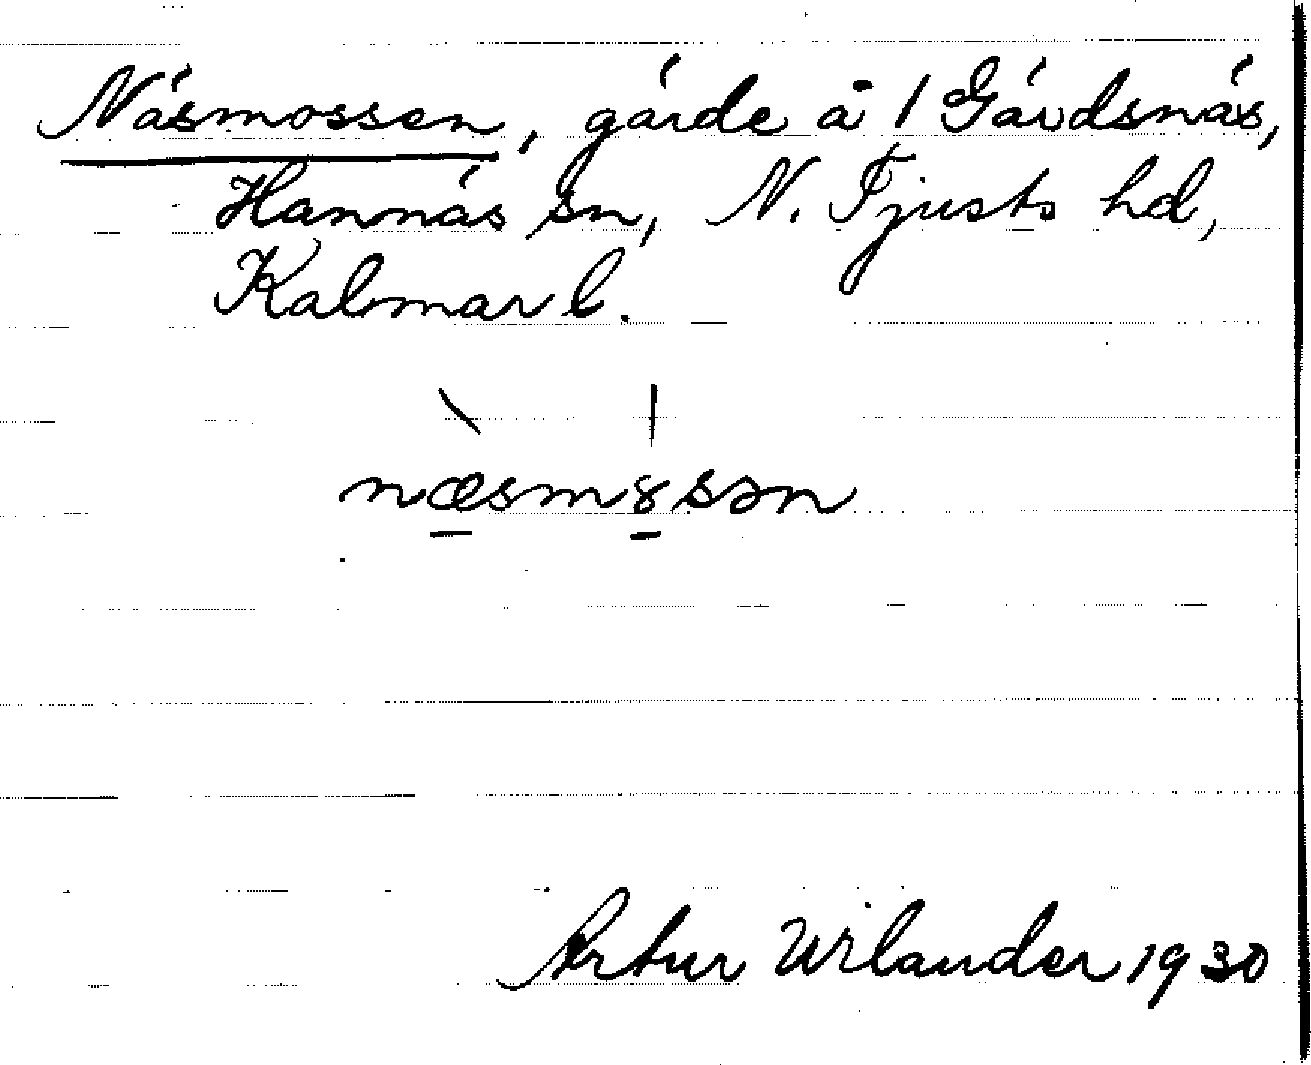 Näsmossen, gärde å 1 Gärdsnäs,
Hannäs sn, N. Tjusts hd,
Kalmar l.
næsmɤsən
Artur Wilander 1930